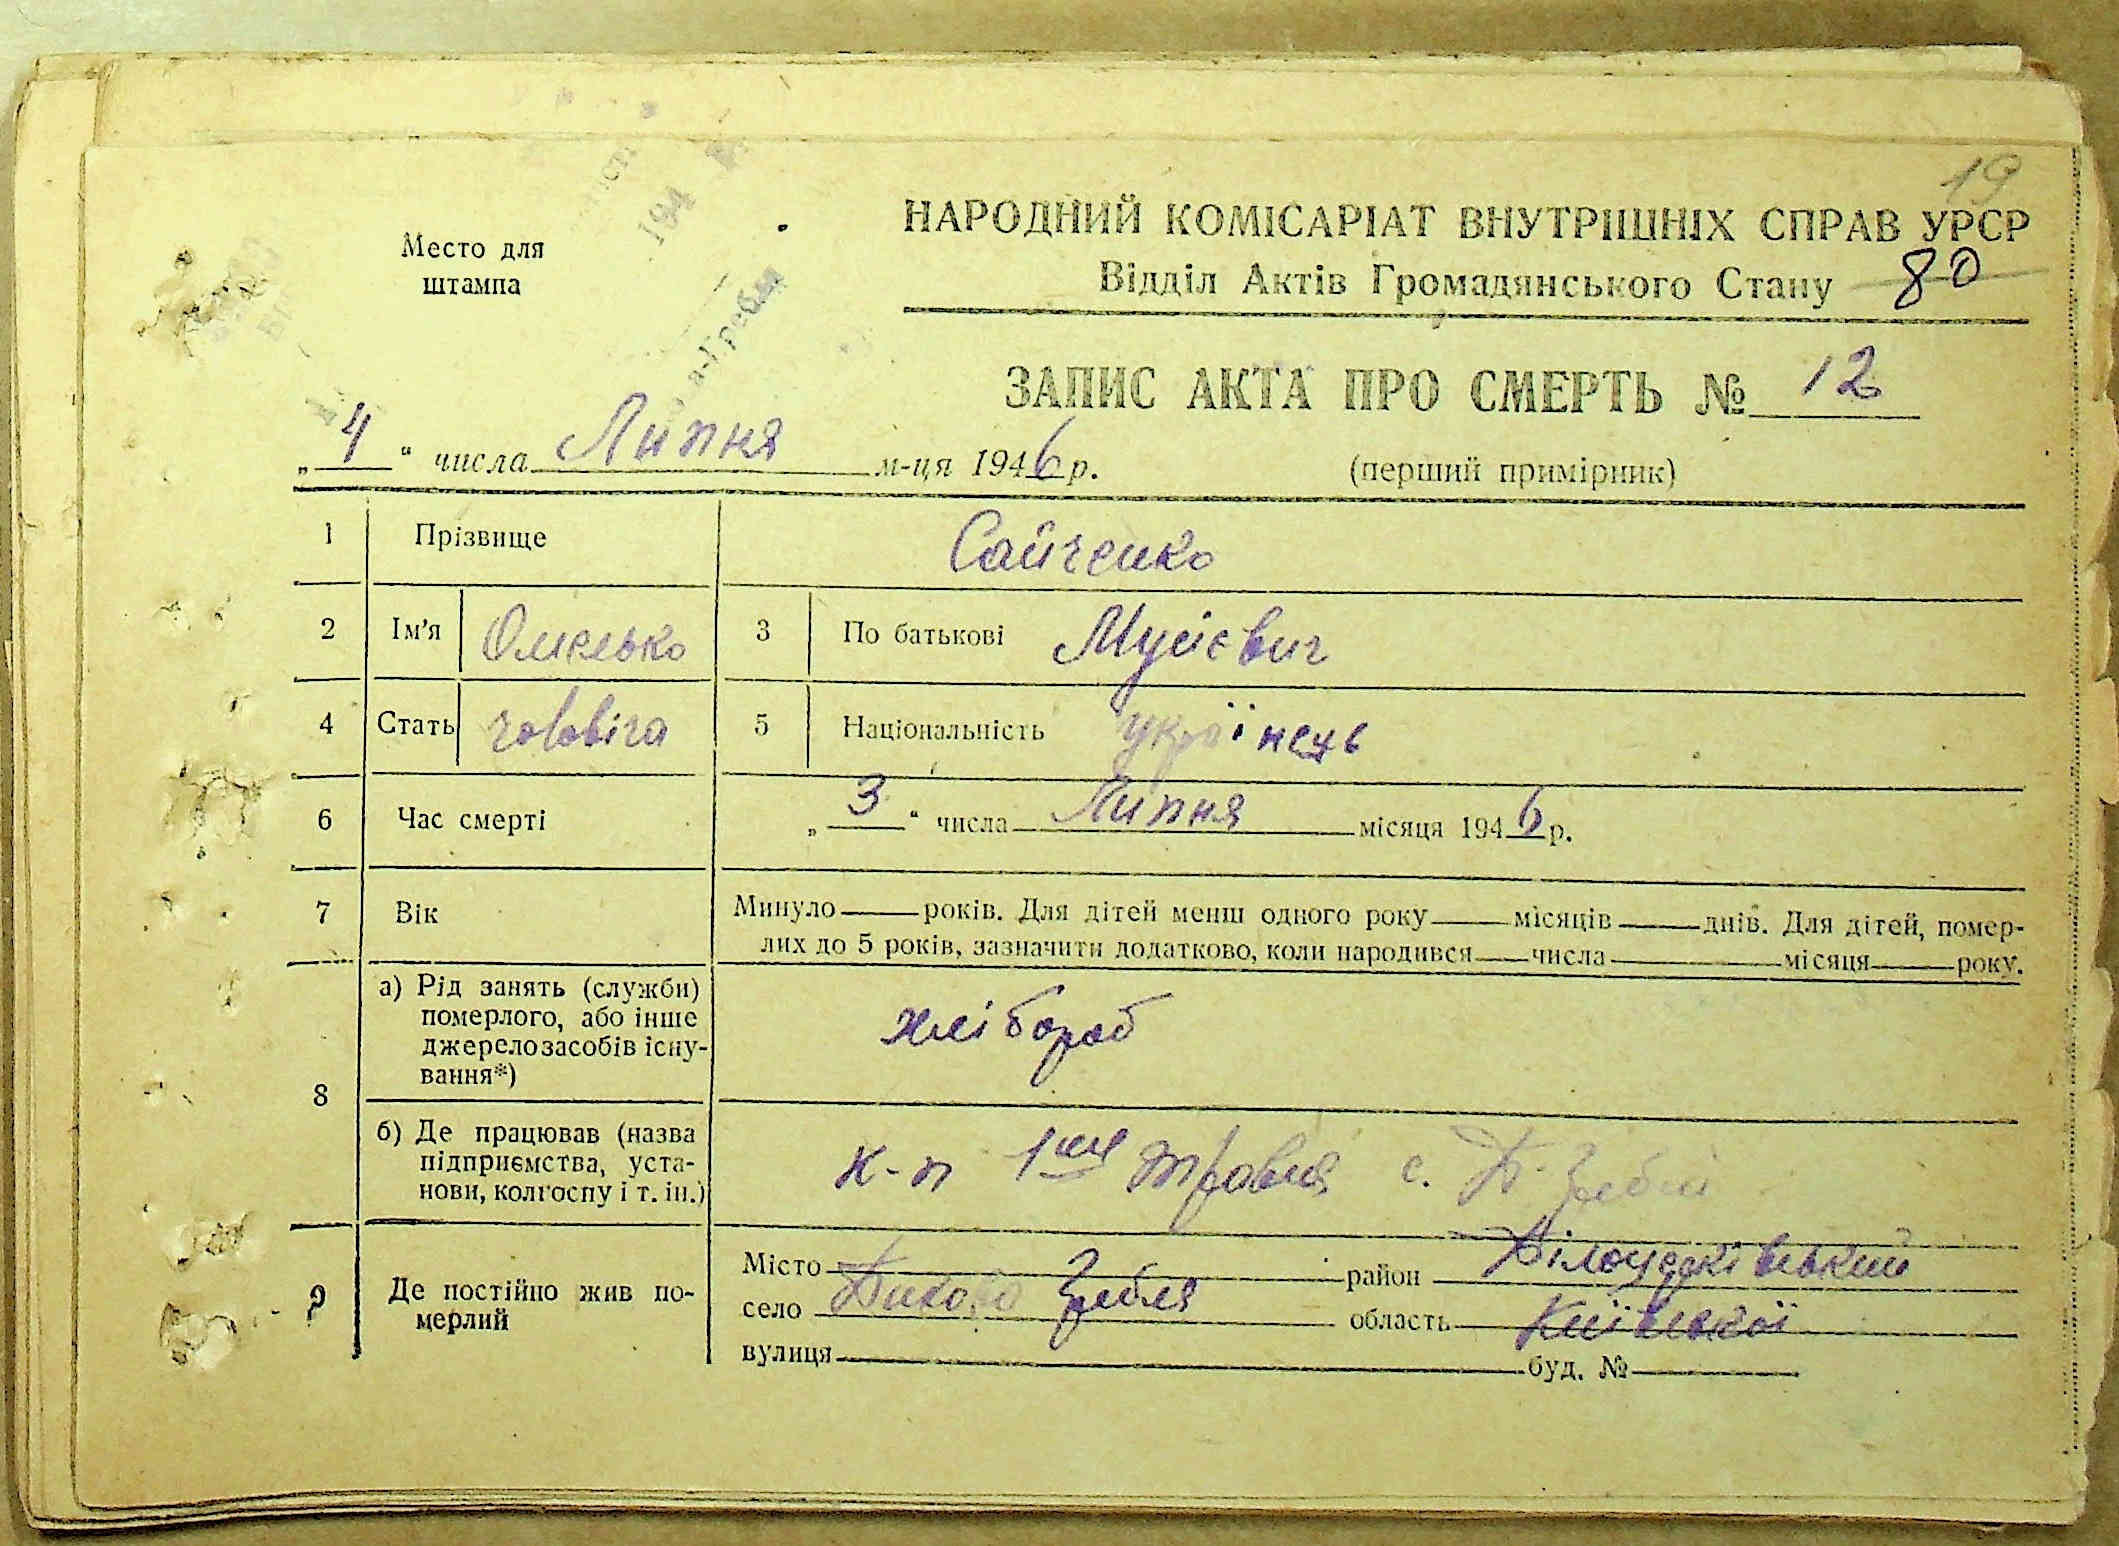 19
НАРОДНИЙ КОМІСАРІАТ ВНУТРІШНІХ СПРАВ УРСР
Відділ Актів Громадянського Стану 80
Место для
штампа
194
а-Гребля
ЗАПИС АКТА ПРО СМЕРТЬ № 12
„4“ числа Липня м-ця 1946 р.
(перший примірник)
1 Прізвище Сайченко
2 Ім'я Омелько 3 По батькові Мусієвич
4 Стать чоловіча 5 Національність українець
6 Час смерті „3“ числа Липня місяця 1946 р.
7 Вік Минуло — років. Для дітей менш одного року — місяців — днів. Для дітей, помер-
лих до 5 років, зазначити додатково, коли народився — числа — місяця — року.
8 а) Рід занять (служби)
померлого, або інше
джерело засобів існу-
вання*)
хлібороб
б) Де працював (назва
підприємства, уста-
нови, колгоспу і т. ін.)
к-п 1ше травня с. Д-Греблі
9 Де постійно жив по-
мерлий
Місто район Білоцерківський
село Дикова Гребля область Київської
вулиця буд. №